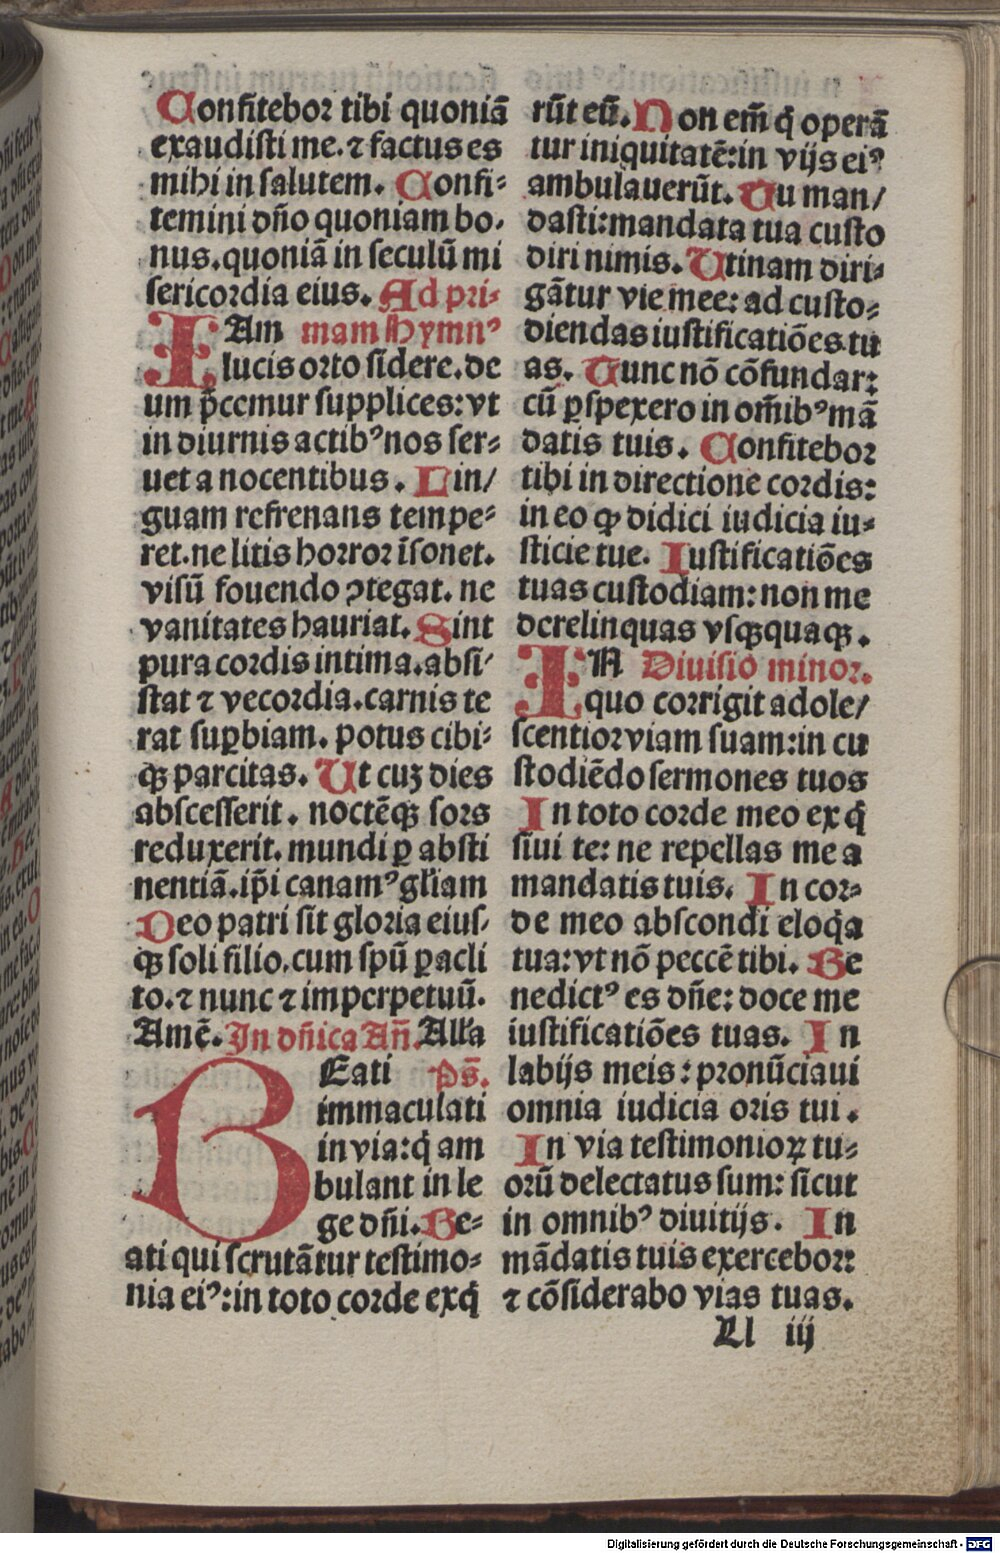 Confitebor tibi quoniã
exaudisti me. ⁊ factus es
mihi in salutem. Confi⸗
temini dño quoniam bo.
nus. quoniã in seculũ mi
sericordia eius. Ad pri⸗
IAm mam Hymnꝰ
lucis orto sidere. de
um p̄cemur supplices: vt
in diurnis actibꝰ nos ser⸗
uet a nocentibus. Lin/
guam refrenans tempe⸗
ret. ne litis horror ĩsonet.
visũ fouendo ↄtegat. ne
vanitates hauriat. Sint
pura cordis intima. absi/
stat ⁊ vecordia. carnis te
rat suꝑbiam. potus cibi⸗
qꝫ parcitas. Ut cuꝫ dies
abscesserit. noctẽqꝫ sors
reduxerit. mundi ꝑ absti
nentiã. ip̃i canamꝰ gl̃iam
Deo patri sit gloria eius/
qꝫ soli filio. cum spũ ꝑacli
to. ⁊ nunc ⁊ imperpetuũ.
Amẽ. In dñica Añ. Alla
BEati Ps̃.
immaculati
in via: q̇ am
bulant in le
ge dñi. Be⸗
ati qui scrutãtur testimo⸗
nia eiꝰ: in toto corde exq̇
rũt eũ. Non em̃ q̇ operã
tur iniquitatẽ: in vijs eiꝰ
ambulauerũt. Tu man/
dasti: mandata tua custo
diri nimis. Utinam diri⸗
gãtur vie mee: ad custo⸗
diendas iustificatiões tu
as. Tunc nõ cõfundar:
cũ ꝑspexero in om̃ibꝰ mã
datis tuis. Confitebor
tibi in directione cordis:
in eo ꝙ didici iudicia iu⸗
sticie tue. Iustificatiões
tuas custodiam: non me
derelinquas vsqꝫquaqꝫ.
IN Diuisio minor.
quo corrigit adole/
scentior viam suam: in cu
stodiẽdo sermones tuos
In toto corde meo exq̇
siui te: ne repellas me a
mandatis tuis. In cor⸗
de meo abscondi eloq̇a
tua: vt nõ peccẽ tibi. Be
nedictꝰ es dñe: doce me
iustificatiões tuas. In
labijs meis: pronũciaui
omnia iudicia oris tui.
In via testimonioꝝ tu⸗
orũ delectatus sum: sicut
in omnibꝰ diuitijs. In
mãdatis tuis exercebor:
⁊ cõsiderabo vias tuas.
Ll iij
Digitalisierung gefördert durch die Deutsche Forschungsgemeinschaft - DFG